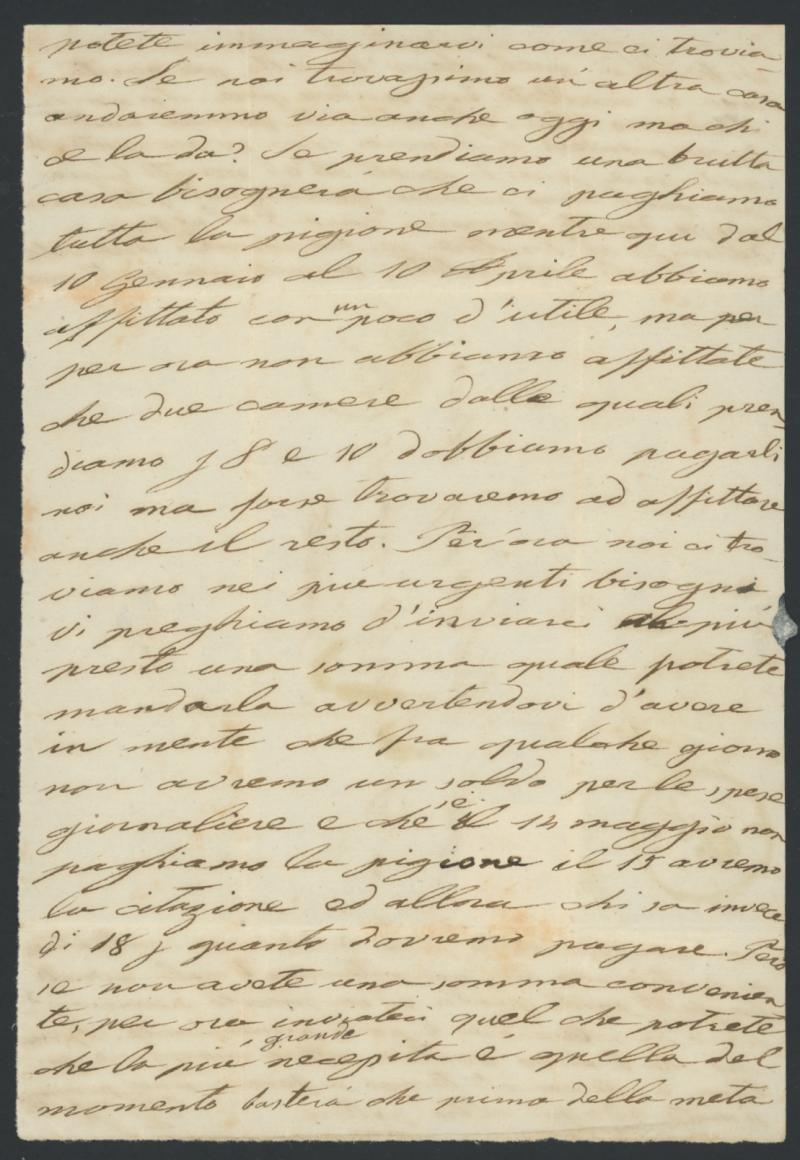 potete immaginarvi come ci trovia-
mo. Se noi trovassimo un'altra casa
andaremmo via anche oggi ma chi
ce la da? Se prendiamo una brutta
casa bisognerá che ci paghiamo
tutta la pigione mentre qui dal
10 Gennaio al 10 Aprile abbiamo
affittato con un poco d'utile, ma per
per ora non abbiamo affittate
che due camere dalle quali pren-
diamo f 8 e 10 dobbiamo pagarli
noi ma forse trovaremo ad affittare
anche il resto. Per ora noi ci tro-
viamo nei piu urgenti bisogni
vi preghiamo d'inviarci al piú
presto una somma quale potrete
mandarla avvertendovi d'avere
in mente che fra qualche giorno
non avremo un soldo per le spese
giornaliere e che se il 14 maggio non
paghiamo la pigione il 15 avremo
la citazione ed allora chi sa invece
di 18 f quanto dovremo pagare. Peró
se non avete una somma convenien
te, per ora inviateci quel che potrete
che la piú grande necessita é quella del
momento basterá che prima della meta